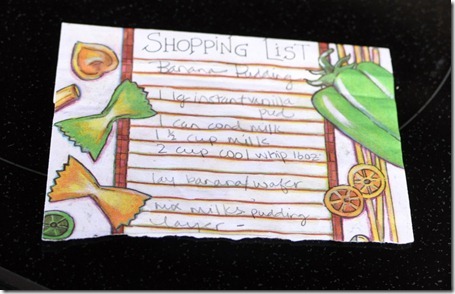 SHOPPING LIST
Banana Pudding
1 lg instant vanilla
pud
1 can cond milk
1 ½ cup milk
2 cup cool whip 16oz
lay banana/wafer
mix milks pudding
layer -